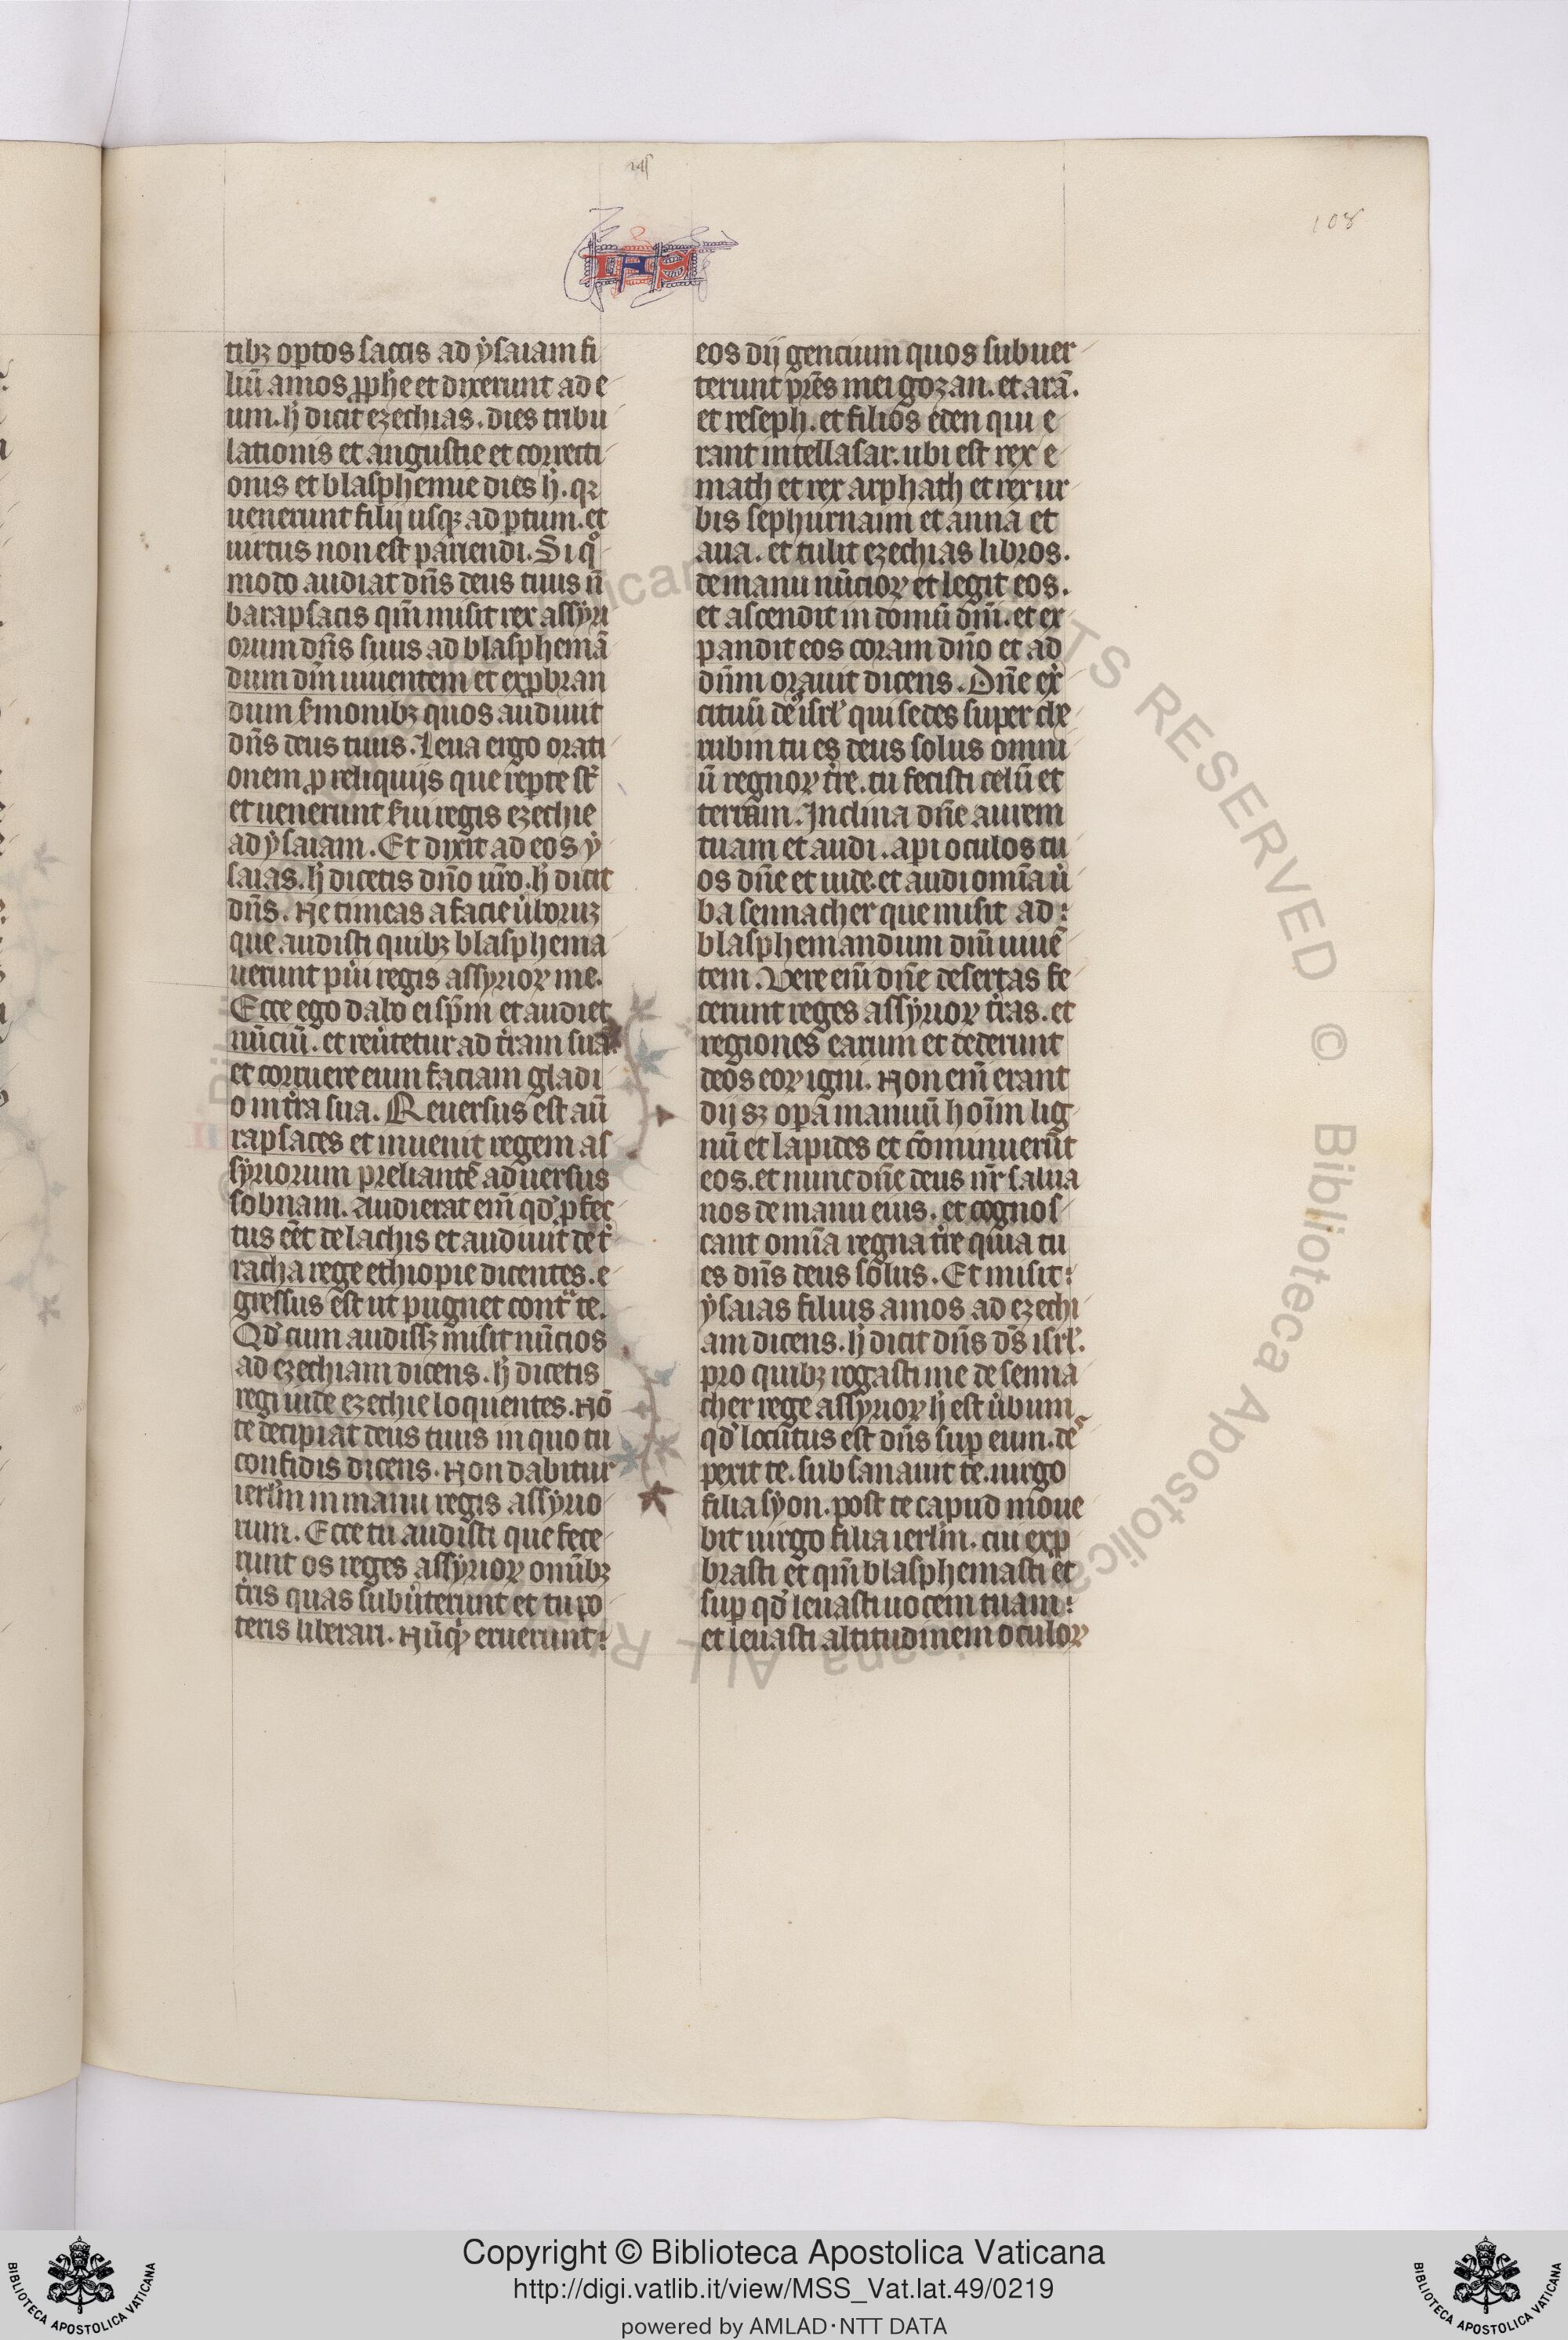 108
IAS
tibꝫ op̱tos saccis ad ẏsaiam fi
liū amos ꝓph̄e et dixerunt ad e
um. h̄ dicit ezechias. dies tribu
lationis et angustie et correcti
onis et blasphemie dies h̄. qꝛ
uenerunt filij usqꝫ ad p̱tum. et
uirtus non est pariendi. Si qͦ
modo audiat dn̄s deus tuus ū
ba rapsacis qm̄ misit rex assẏri
orum dn̄s suus ad blasphemā
dum dm̄ uiuentem et exp̱bran
dum s̓monibꝫ quos audiuit
dn̄s deus tuus. Leua ergo orati
onem ꝓ reliquijs que rep̱te st̄
et uenerunt s̓ui regis ezechie
ad ẏsaiam. Et dixit ad eos ẏ
saias. h̄ dicetis dn̄o ur̄o. h̄ dicit
dn̄s. Ne timeas a facie u̓boruꝫ
que audisti quibꝫ blasphema
uerunt pu̓i regis assyrioꝝ me.
Ecce ego dabo ei sp̄m et audiet
nūciū. et reu̓tetur ad t̓ram suā.
et corruere eum faciam gladi
o in t̓ra sua. Reuersus est aū
rapsaces et inuenit regem as
sẏriorum preliantē aduersus
lobnam. Audierat enī qd̓ ꝓfec
tus eēt de lachis et audiuit de t̓
racha rege ethiopie dicentes. e
gressus est ut pugnet contᵃ te.
Qd̓ cum audissꝫ misit nūcios
ad ezechiam dicens. h̄ dicetis
regi iude ezechie loquentes. Nō
te decipiat deus tuus in quo tu
confidis dicens. Non dabitur
ierl̄m in manu regis assẏrio
rum. Ecce tu audisti que fece
runt os reges assẏrioꝝ omībꝫ
t̓ris quas subu̓terunt et tu po
teris liberari. Nūqͥd eruerunt:
eos dij gencium quos subuer
terunt pr̄es mei gozan. et arā.
et reseph. et filios eden qui e
rant in tellasar. ubi est rex e
math et rex arphath et rex ur
bis sephurnaim et anna et
aua. et tulit ezechias libros.
de manu nūcioꝝ et legit eos.
et ascendit in domū dn̄i. et ex
pandit eos coram dn̄o et ad
dn̄m orauit dicens. Dn̄e ex̓
cituū de isrl̓ qui sedes super che
rubin tu es deus solus omni
ū regnoꝝ t̓re. tu fecisti celū et
terram. Inclina dn̄e aurem
tuam et audi. api oculos tu
os dn̄e et uide. et audi omīa u̓
ba sennacher que misit ad:
blasphemandum dm̄ uiuē
tem. Vere enī dn̄e desertas fe
cerunt reges assẏrioꝝ t̓ras. et
regiones earum et dederunt
deos eoꝝ igni. Non enī erant
dij sꝫ op̱a manuū hoīm lig
nū et lapides et cōminuerūt
eos. et nunc dn̄e deus nr̄ salua
nos de manu eius. et cognos
cant omīa regna t̓re quia tu
es dn̄s deus solus. Et misit:
ẏsaias filius amos ad ezechi
am dicens. h̄ dicit dn̄s ds̄ isrl̓.
pro quibꝫ rogasti me de senna
cher rege assyrioꝝ h̄ est u̓bum
qd̓ locutus est dn̄s sup̱ eum. des
pexit te. subsanauit te. uirgo
filia syon. post te capud moue
bit uirgo filia ierl̄m. cui exp̱
brasti et qm̄ blasphemasti et
sup̱ qd̓ leuasti uocem tuam:
et leuasti altitudinem oculoꝝ
© Biblioteca Apostolica Vaticana ALL RIGHTS RESERVED
Copyright © Biblioteca Apostolica Vaticana
http://digi.vatlib.it/view/MSS_Vat.lat.49/0219
powered by AMLAD·NTT DATA
BIBLIOTECA APOSTOLICA VATICANA
BIBLIOTECA APOSTOLICA VATICANA